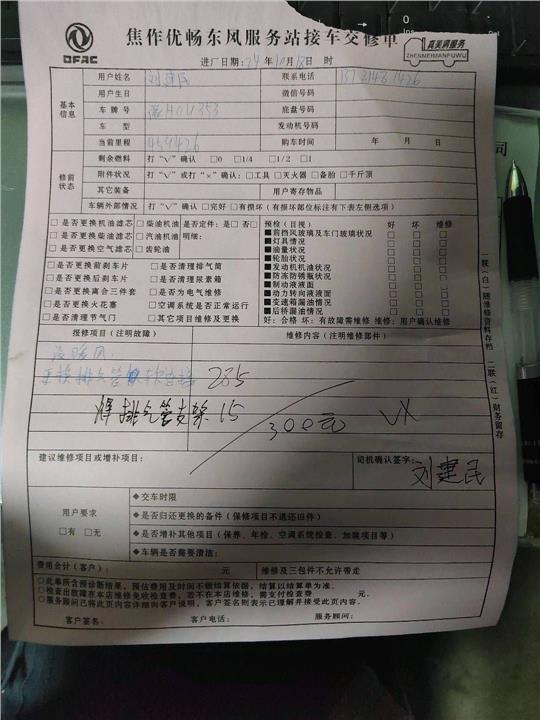 焦作优畅东风服务站接车交修单
DFAC
真美满服务
ZHENMEIMANFUWU
进厂日期：24年10月18日 时
基本信息
用户姓名 刘建民 联系电话
用户生日 微信号码
车牌号 底盘号码
车型 发动机号码
当前里程 459426 购车时间 年 月 日
修前状态
剩余燃料 打“√”确认 □0 □1/4 □1/2 □1
附件状况 打“√”或打“×”确认：□工具 □灭火器 □备胎 □千斤顶
其它装备 用户寄存物品
车辆外部情况 打“√”确认 □完好 □有损坏（有损坏部位标注有下表左侧选项）
□是否更换机油滤芯 □柴油机油 是否定件：是□ 否□
□是否更换柴油滤芯 □汽油机油 明细：
□是否更换空气滤芯 □齿轮油
□是否更换前刹车片 □是否清理排气筒
□是否更换后刹车片 □是否清理尿素箱
□是否更换离合三件套 □是否为电气维修
□是否更换火花塞 □空调系统是否正常运行
□是否清理节气门 □其它项目维修及更换
预检（目视） 好 坏 维修
■前挡风玻璃及车门玻璃状况 □ □ □
■灯具情况 □ □ □
■油量状况 □ □ □
■轮胎状况 □ □ □
■发动机机油状况 □ □ □
■防冻防锈瓶状况 □ □ □
■制动液液面 □ □ □
■动力转向液液面 □ □ □
■变速箱漏油情况 □ □ □
■后桥漏油情况 □ □ □
好：合格 坏：有故障需维修 维修：用户确认维修
报修项目（注明故障） 维修内容（注明维修部件）
没暖风
更换排气管软连接 285
焊排气管支架 15
300元
建议维修项目或增补项目：
司机确认签字：
刘建民
用户要求
□有 □无
◆交车时限
◆是否归还更换的备件（保修项目不退还旧件）
◆是否增补其他项目（保养、年检、空调系统检查、加装项目等）
◆车辆是否需要清洁：
费用合计（客户）： 元 维修及三包件不允许带走
○此单所含预诊断结果，预估费用及时间不做结算依据，结算以结算单为准。
○检查出故障在本店维修免收检查费，若不在本店维修，需支付检查费 元。
○服务顾问已将此页内容详细向客户说明，客户签名则表示已理解并接受此页内容。
客户签名： 客户电话： 服务顾问：
一联（白）随维修资料存档 二联（红）财务留存
司